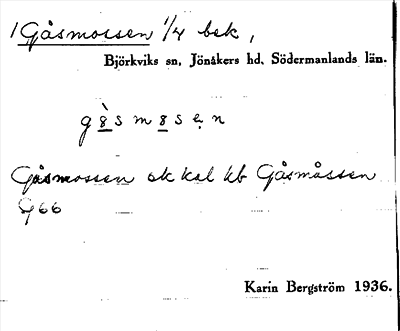 1 Gåsmossen 1/4 bek,
Björkviks sn, Jönåkers hd, Södermanlands län.
Gåsmossen ek kal kb Gåsmåssen
G66
Karin Bergström 1936.